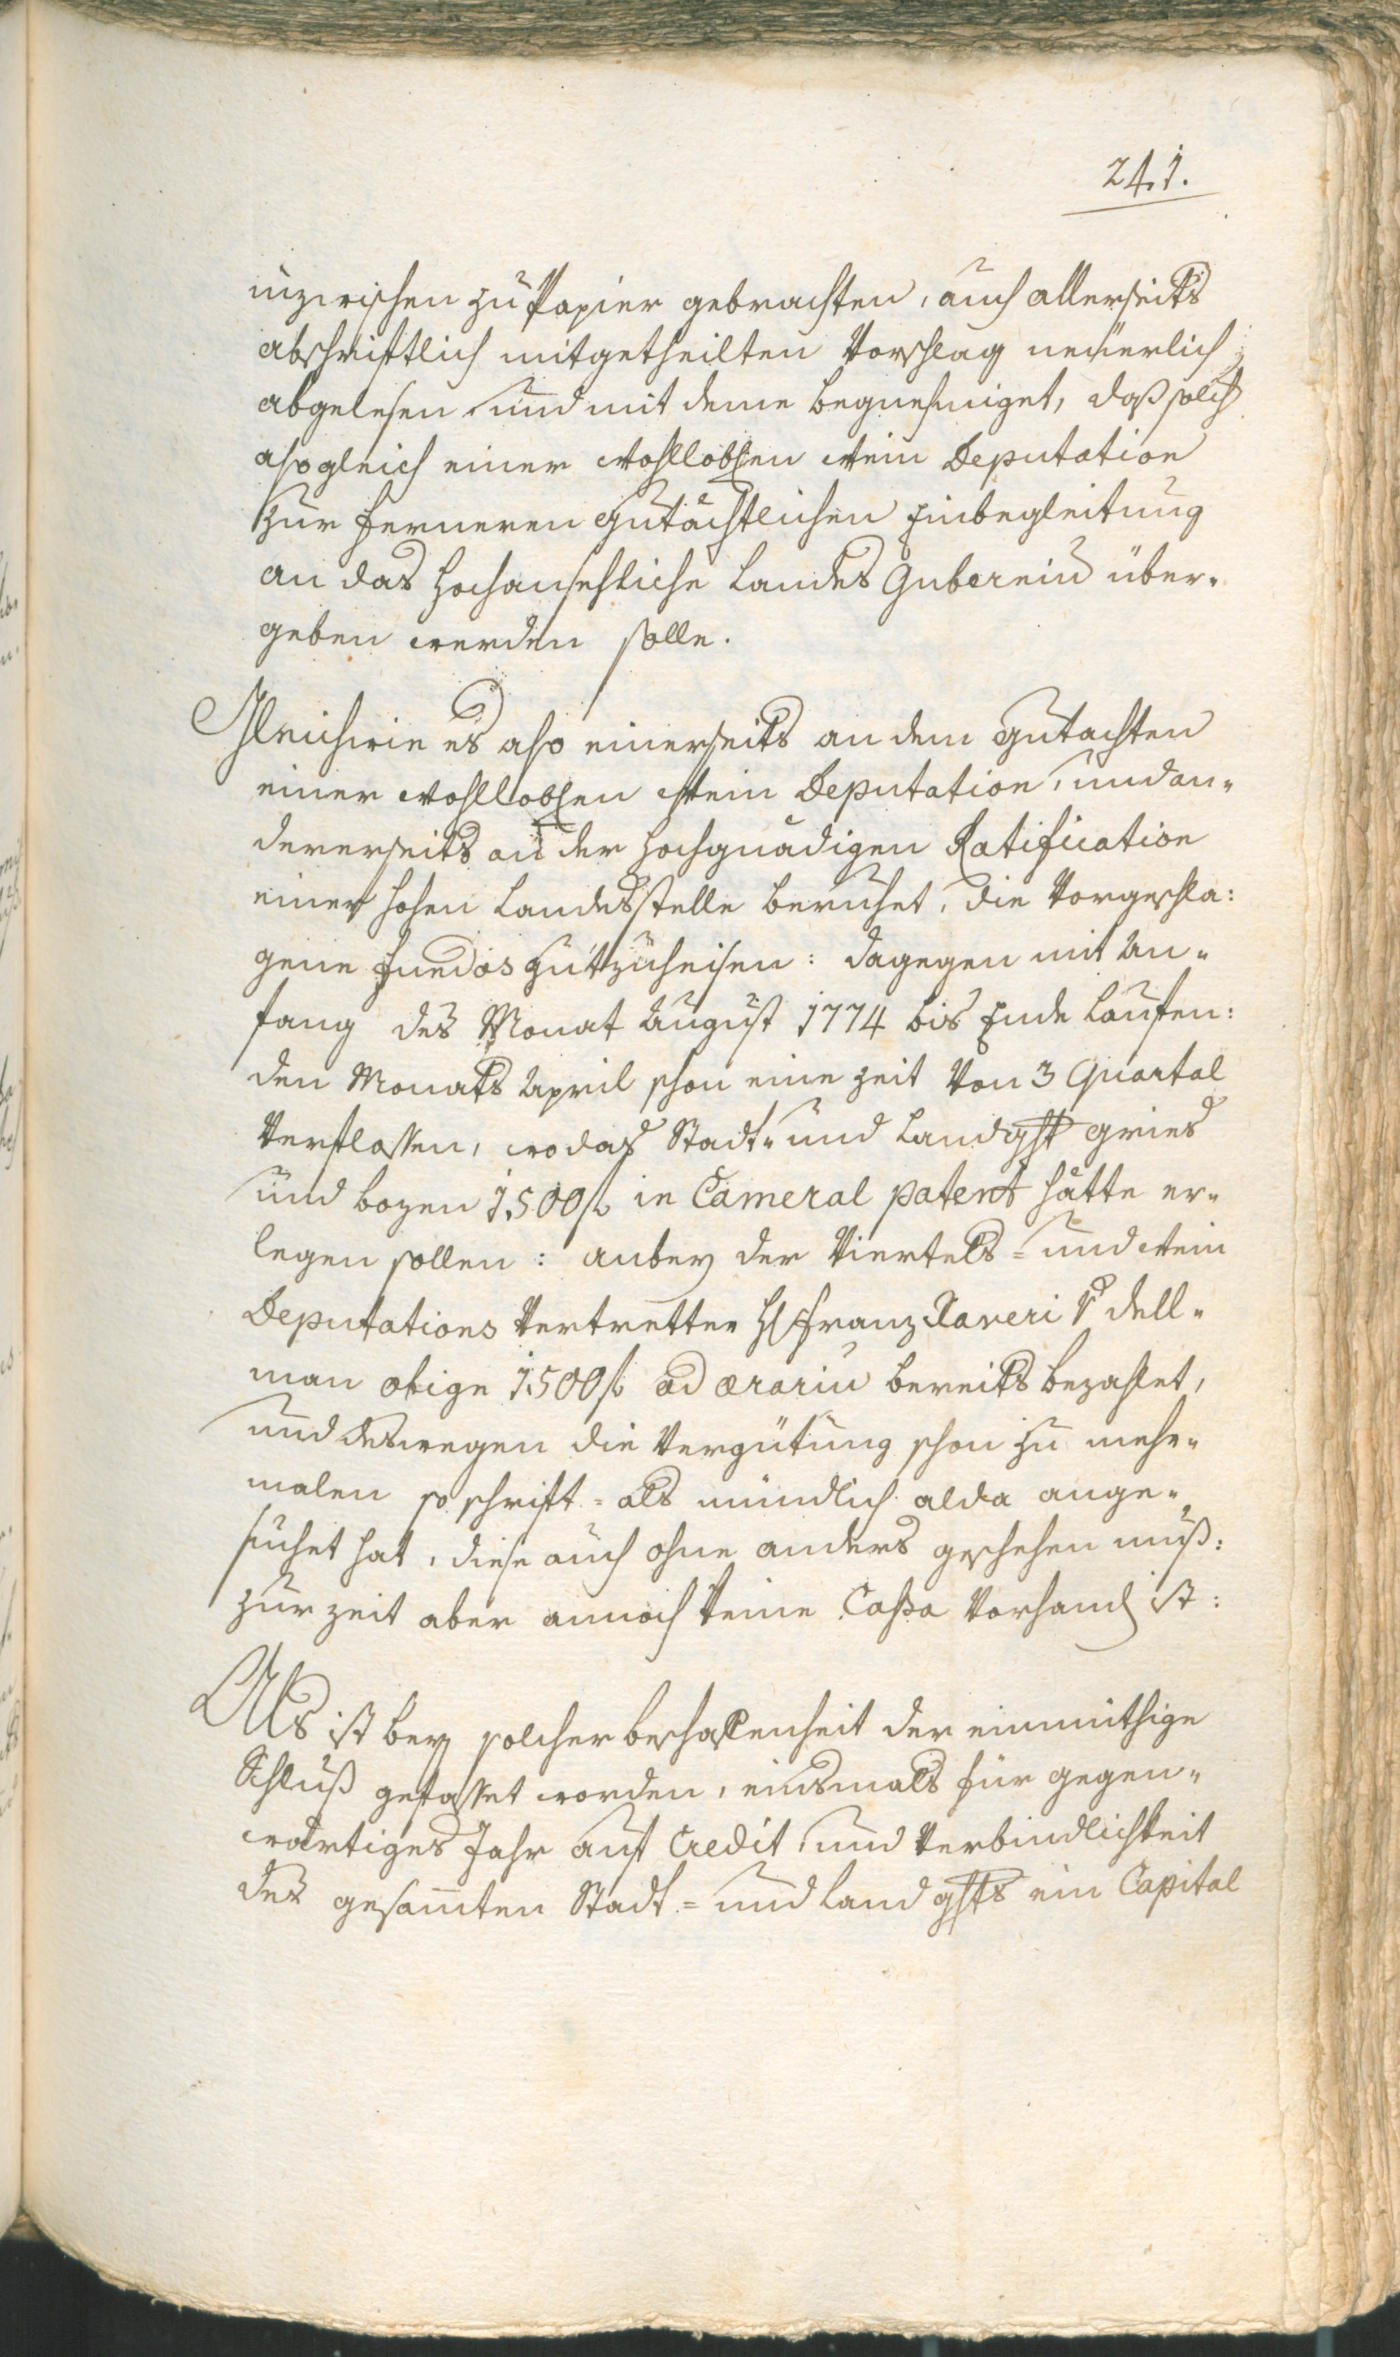 241.
inzwischen zu Papier gebrachten, auch allerseits
abschriftlich mitgetheilten Vorschlag neüerlich
abgelesen und mit deme begnehmiget, daß solch
also gleich einer wohllobl:en Wein Deputation
zur ferneren gutächtlichen Einbegleitung
an das hochansehliche Landes Guberniū über-
geben werden solle.
Gleichwie es also einerseits an dem Gutachten
einer wohllobl:en Wein Deputation, und an-
dererseits an der hochgnädigen Ratification
einer hohen Landesstelle beruhet, die Vorgeschla:
gene fundos gutzuheisen: dagegen mit An-
fang des Monat August 1774 bis Ende laufen:
den Monats April schon eine Zeit Von 3 Quartal
Verflossen, wo das Stadt- und Landght Gries
und Bozen 1500 f in Cameral patent hätte er-
legen sollen: anbey der Viertels- und Wein
Deputations Vertretter H: Franz Xaveri V: dell-
man obige 1500 f ad ærariū bereits bezahlet,
und deswegen die Vergütung schon zu mehr-
malen so schrift- als mündlich alda ange-
suchet hat, diese auch ohne anders geschehen muß:
zur Zeit aber annoch keine Cassa Vorhand ist:
Als ist bey solcher beschaffenheit der einmüthige
Schluß gefasset worden, einsmals für gegen-
wärtiges Jahr auf Credit, und Verbindlichkeit
des gesam̄ten Stadt- und Landghts ein Capital